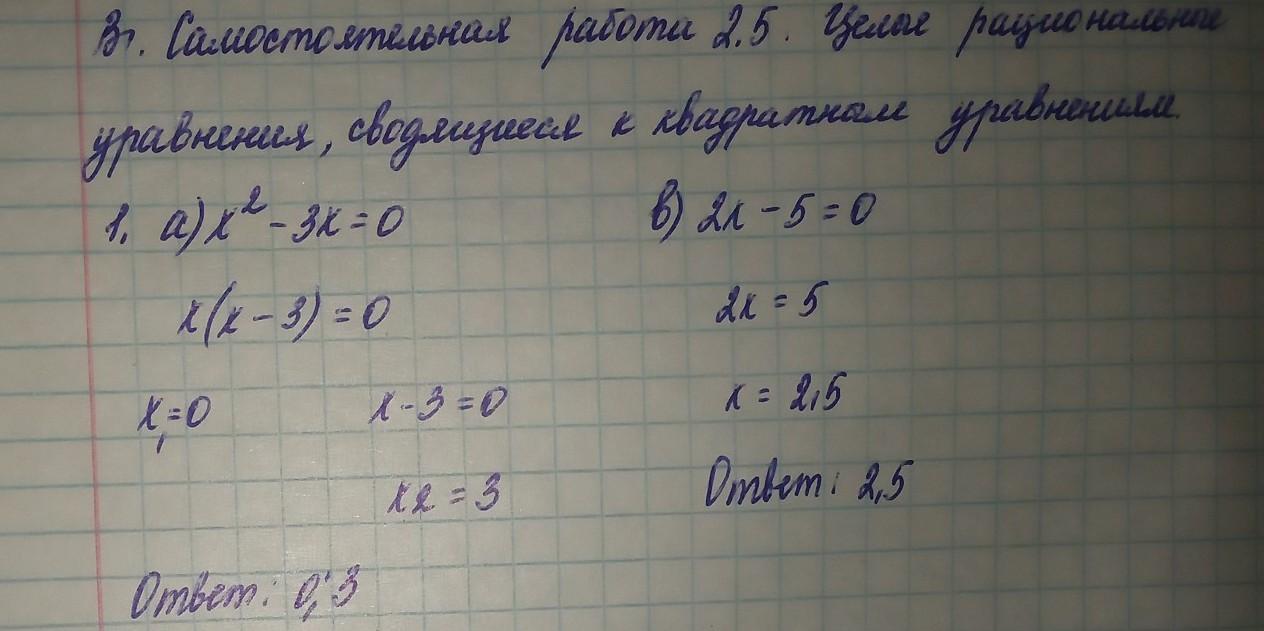 В1. Самостоятельная работа 2.5. Целые рациональные
уравнения, сводящиеся к квадратным уравнениям.
1. а) x² - 3x = 0
x(x - 3) = 0
x₁ = 0 x - 3 = 0
x2 = 3
Ответ: 0; 3
в) 2x - 5 = 0
2x = 5
x = 2,5
Ответ: 2,5